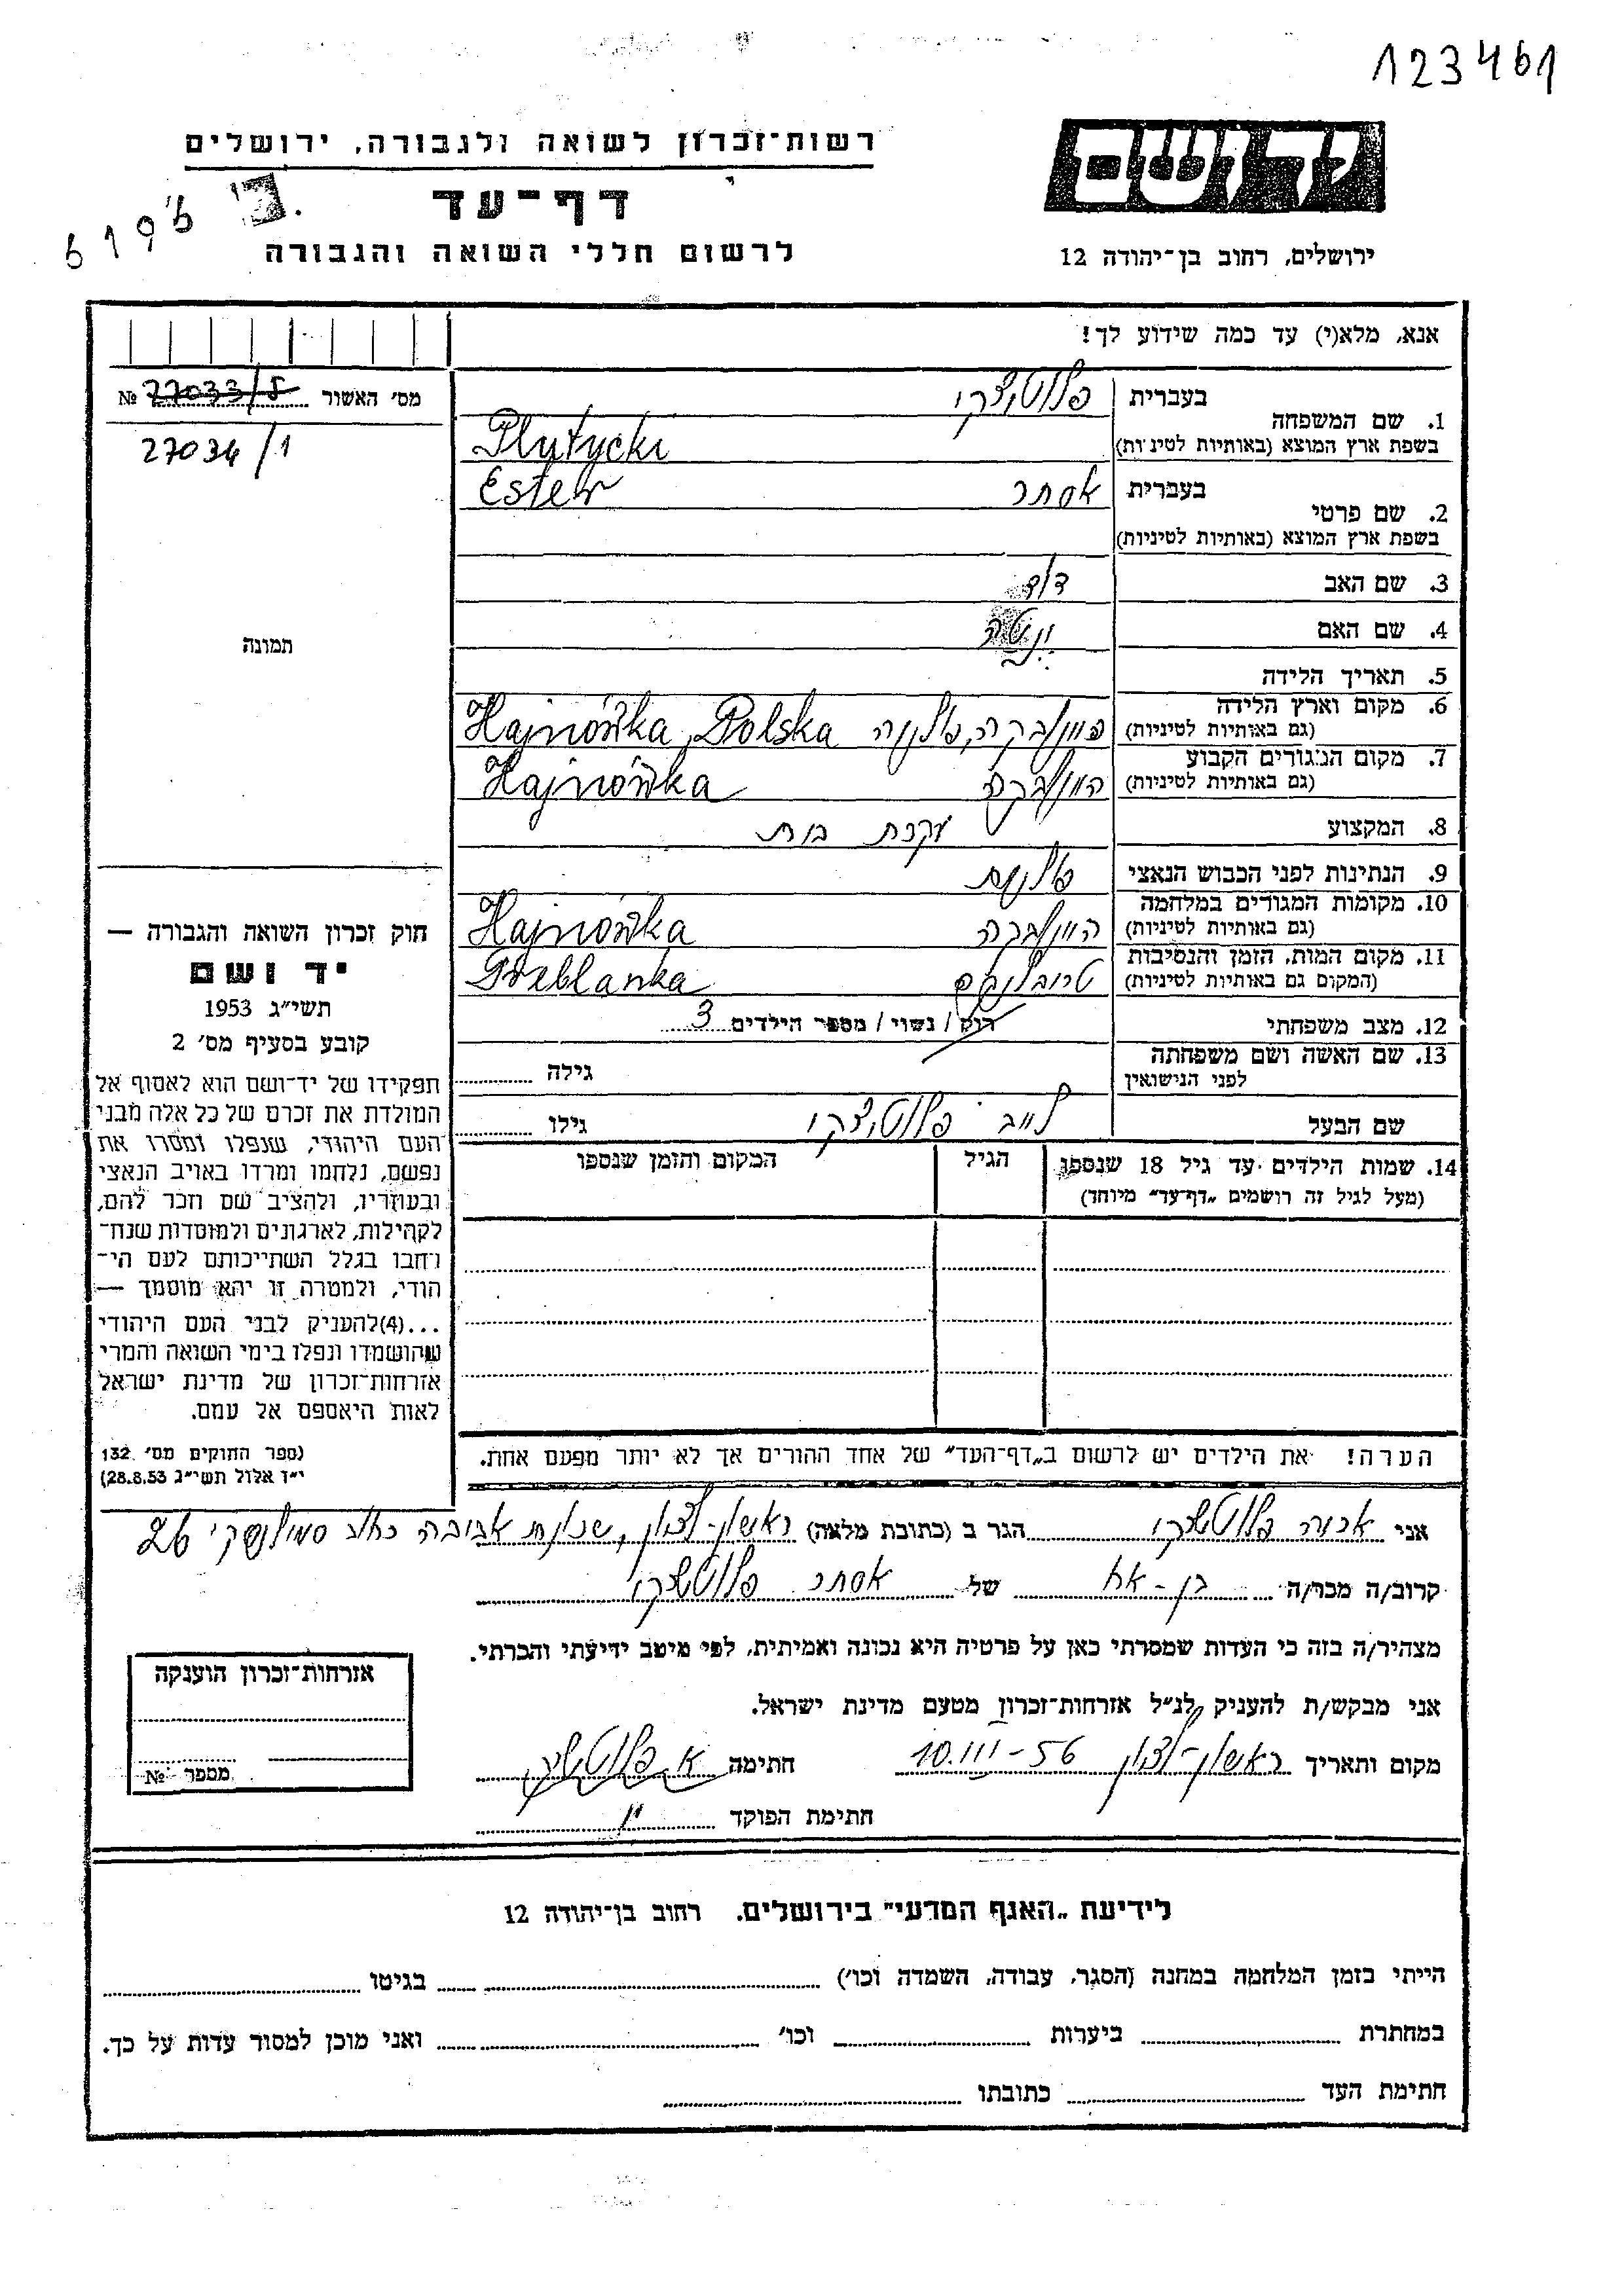 123461
רשות-זכרון לשואה ולגבורה, ירושלים
יד ושם
דף-עד
לרשום חללי השואה והגבורה
ירושלים, רחוב בן-יהודה 12
אנא, מלא(י) עד כמה שידוע לך!
מס׳ האשור № 27033/
27034/1
תמונה
1. שם המשפחה בעברית פלוטיצקי
בשפת ארץ המוצא (באותיות לטיניות) Plutycki
2. שם פרטי בעברית אסתר Ester
בשפת ארץ המוצא (באותיות לטיניות)
3. שם האב דוד
4. שם האם
5. תאריך הלידה
6. מקום וארץ הלידה
(גם באותיות לטיניות) פולניה Hajnówka, Polska
7. מקום המגורים הקבוע
(גם באותיות לטיניות) Hajnówka
8. המקצוע עקרת בית
9. הנתינות לפני הכבוש הנאצי פולנית
10. מקומות המגורים במלחמה
(גם באותיות לטיניות) Hajnówka
11. מקום המות, הזמן והנסיבות
(המקום גם באותיות לטיניות) Treblanka
12. מצב משפחתי רוק / נשוי / מספר הילדים 3
13. שם האשה ושם משפחתה
לפני הנישואין גילה
שם הבעל לייב פלוטיצקי גילו
14. שמות הילדים עד גיל 18 שנספו הגיל המקום והזמן שנספו
(מעל לגיל זה רושמים „דף-עד״ מיוחד)
הערה! את הילדים יש לרשום ב„דף-העד״ של אחד ההורים אך לא יותר מפעם אחת.
חוק זכרון השואה והגבורה —
יד ושם
תשי״ג 1953
קובע בסעיף מס׳ 2
תפקידו של יד-ושם הוא לאסוף אל
המולדת את זכרם של כל אלה מבני
העם היהודי, שנפלו ומסרו את
נפשם, נלחמו ומרדו באויב הנאצי
ובעוזריו, ולהציב שם וזכר להם,
לקהילות, לארגונים ולמוסדות שנח-
רבו בגלל השתייכותם לעם הי-
הודי, ולמטרה זו יהא מוסמך —
...(4)להעניק לבני העם היהודי
שהושמדו ונפלו בימי השואה והמרי
אזרחות-זכרון של מדינת ישראל
לאות היאספם אל עמם.
(ספר החוקים מס׳ 132
י״ז אלול תשי״ג 28.8.53)
אני פלוטיצקי הגר ב (כתובת מלאה) ראשון-לציון, שכונת אביבה רחוב סמילנסקי 26
קרוב/ה מכר/ה בן-אח של אסתר פלוטיצקי
מצהיר/ה בזה כי העדות שמסרתי כאן על פרטיה היא נכונה ואמיתית, לפי מיטב ידיעתי והכרתי.
אני מבקש/ת להעניק לנ״ל אזרחות-זכרון מטעם מדינת ישראל.
מקום ותאריך ראשון-לציון 10.III-56 חתימה א. פלוטיצקי
חתימת הפוקד
אזרחות-זכרון הוענקה
מספר №
לידיעת „האגף המדעי״ בירושלים, רחוב בן-יהודה 12
הייתי בזמן המלחמה במחנה (הסגר, עבודה, השמדה וכו׳) בגיטו
במחתרת ביערות וכו׳ ואני מוכן למסור עדות על כך.
חתימת העד כתובתו